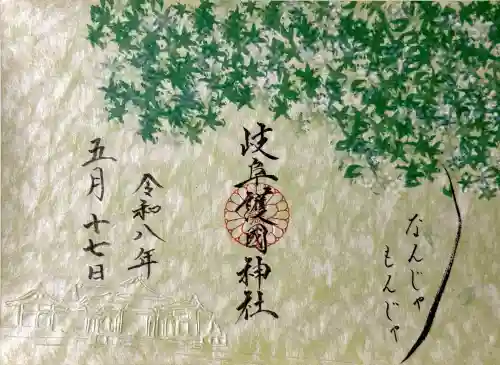 なんじゃ
もんじゃ
岐阜護國神社
令和八年
五月十七日